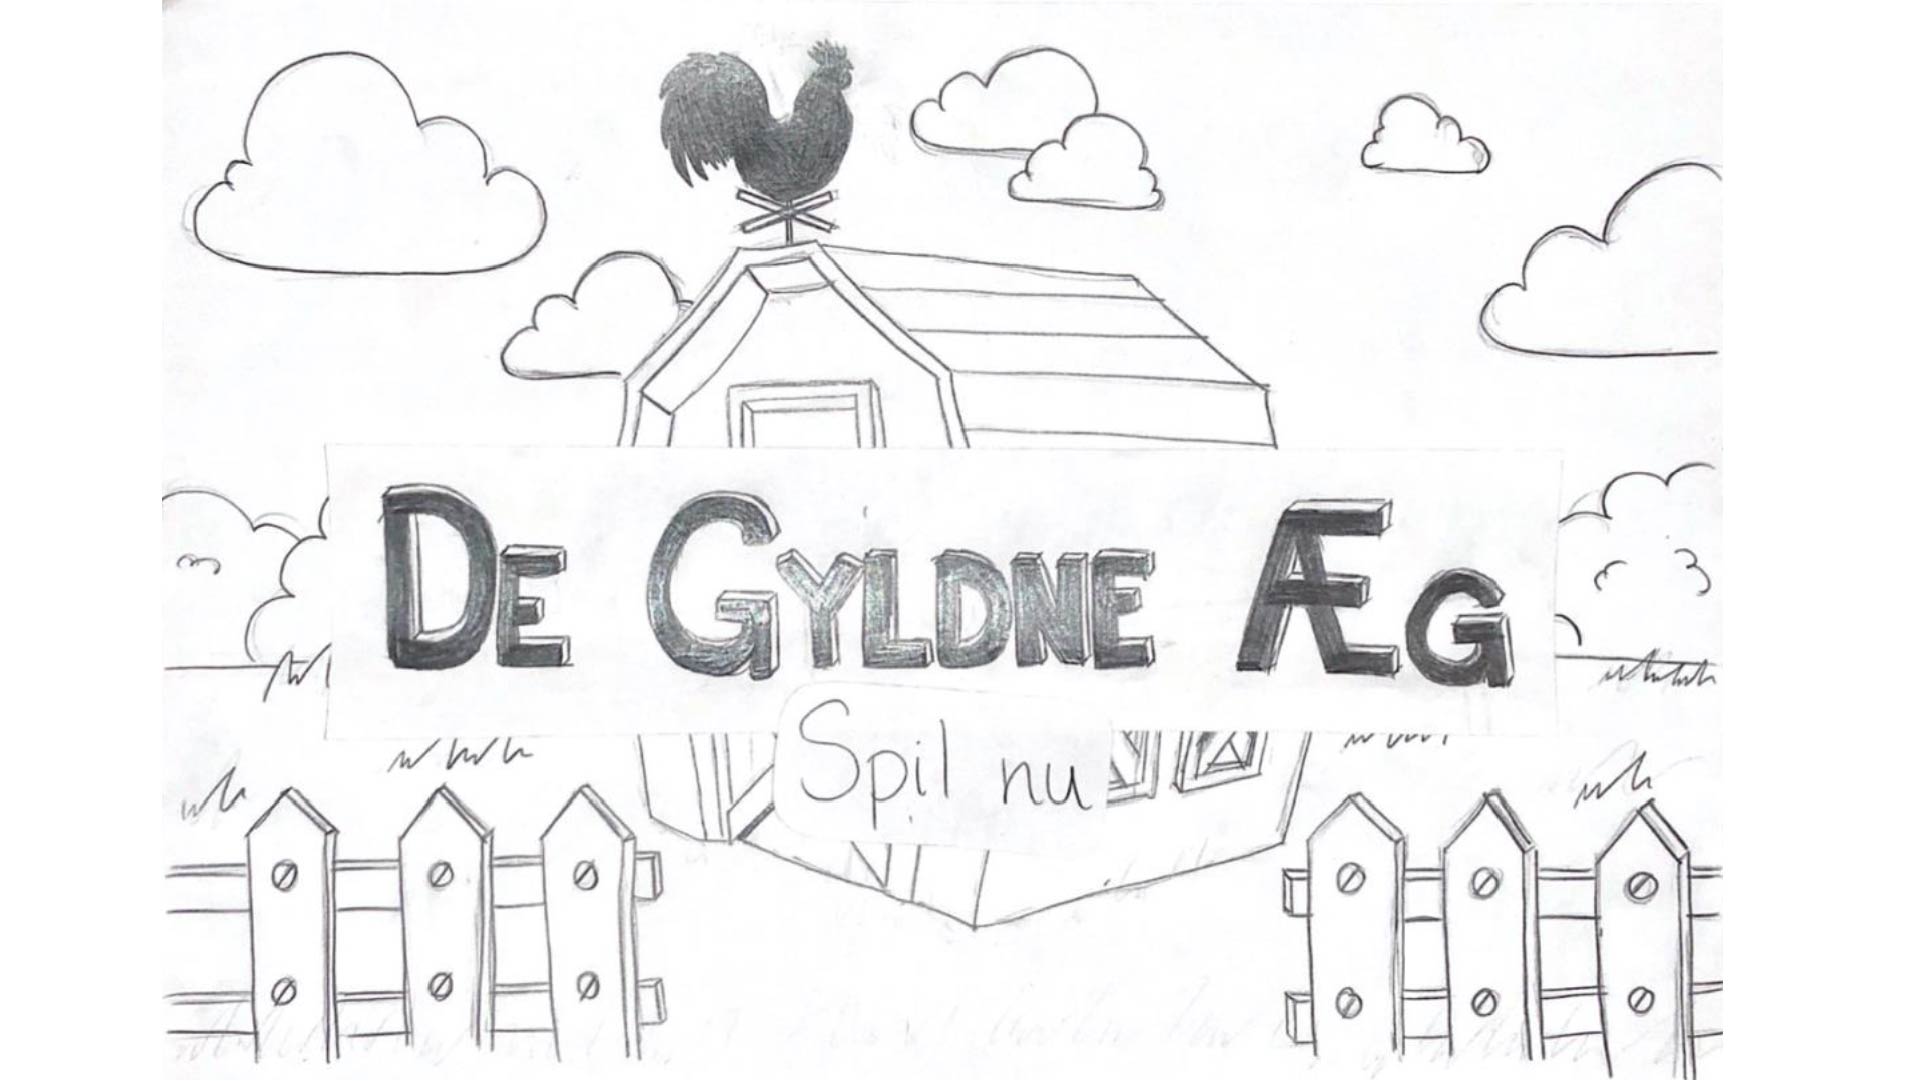 DE GYLDNE ÆG
Spil nu